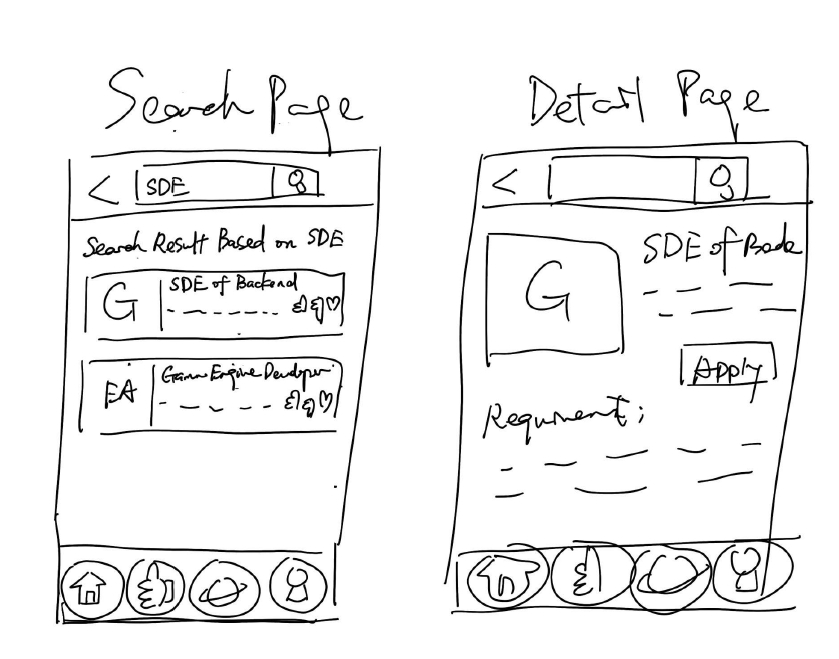 Search Page
SDE
Search Result Based on SDE
G
SDE of Backend
EA
Game Engine Developer
Detail Page
G
SDE of Back
Apply
Requirment: